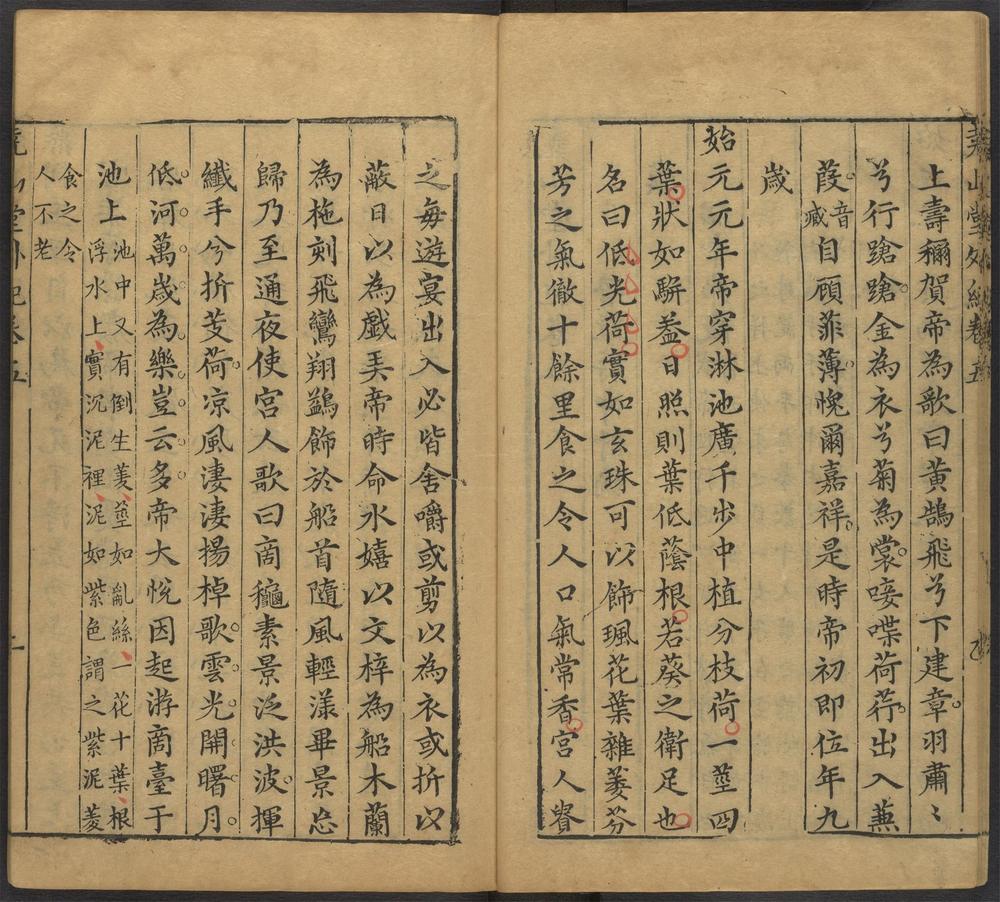 上壽稱賀帝為歌曰黃鵠飛兮下建章羽肅〻
兮行蹌蹌金為衣兮菊為裳唼喋荷荇出入蒹
葭音臧自顧菲薄愧爾嘉祥是時帝初即位年九
歲
始元元年帝穿淋池廣千步中植分枝荷一莖四
葉狀如駢葢日照則葉低蔭根若葵之衛足也
名曰低光荷實如玄珠可以飾珮花葉雜萎芬
芳之氣徹十餘里食之令人口氣常香宮人貴
之每遊宴出入必皆含嚼或剪以為衣或折以
蔽日以為戲弄帝時命水嬉以文梓為船木蘭
為柂刻飛鸞翔鷁飾於船首隨風輕漾畢景忘
歸乃至通夜使宮人歌曰商龝素景泛洪波揮
纖手兮折芰荷凉風淒淒揚棹歌雲光開曙月
低河萬歲為樂豈云多帝大悅因起游商臺于
池上池中又有倒生菱莖如亂絲一花十葉根
浮水上實沉泥裡泥如紫色謂之紫泥菱
食之令
人不老
堯山堂外紀卷五